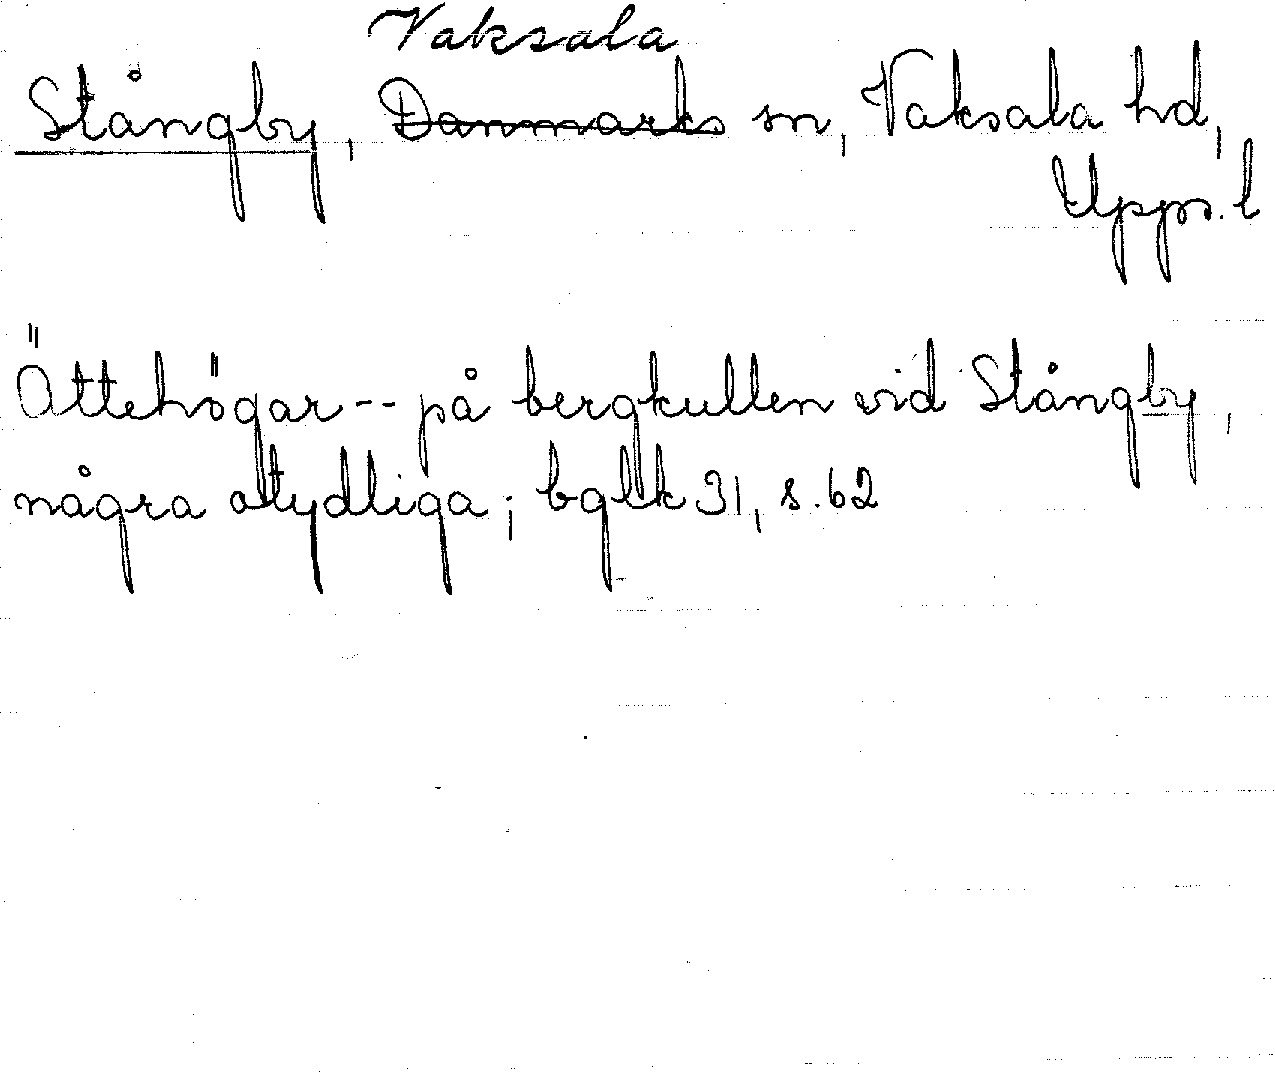 Vaksala
Stångby, Danmarks sn, Vaksala hd,
Upps. l
Ättehögar -- på bergkullen vid Stångby,
några otydliga; bglk 31, s. 62